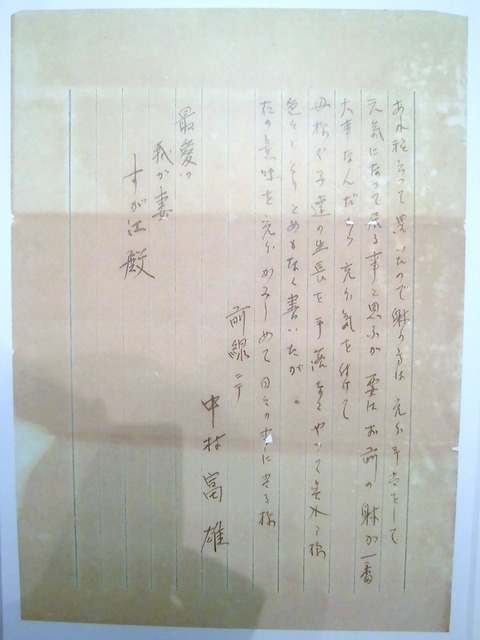 あれ程云って置いたので躰の方は充分手当をして
元気になって居る事と思ふが要はお前の躰が一番
大事なんだから充分気を付けて
母様や子達の生長を手落なくやって呉れる様
色々とりとめもなく書いたが
たの意味を充分かみしめて日々の事に当る様
前線ニテ
中村富雄
最愛の
我が妻
すが江殿